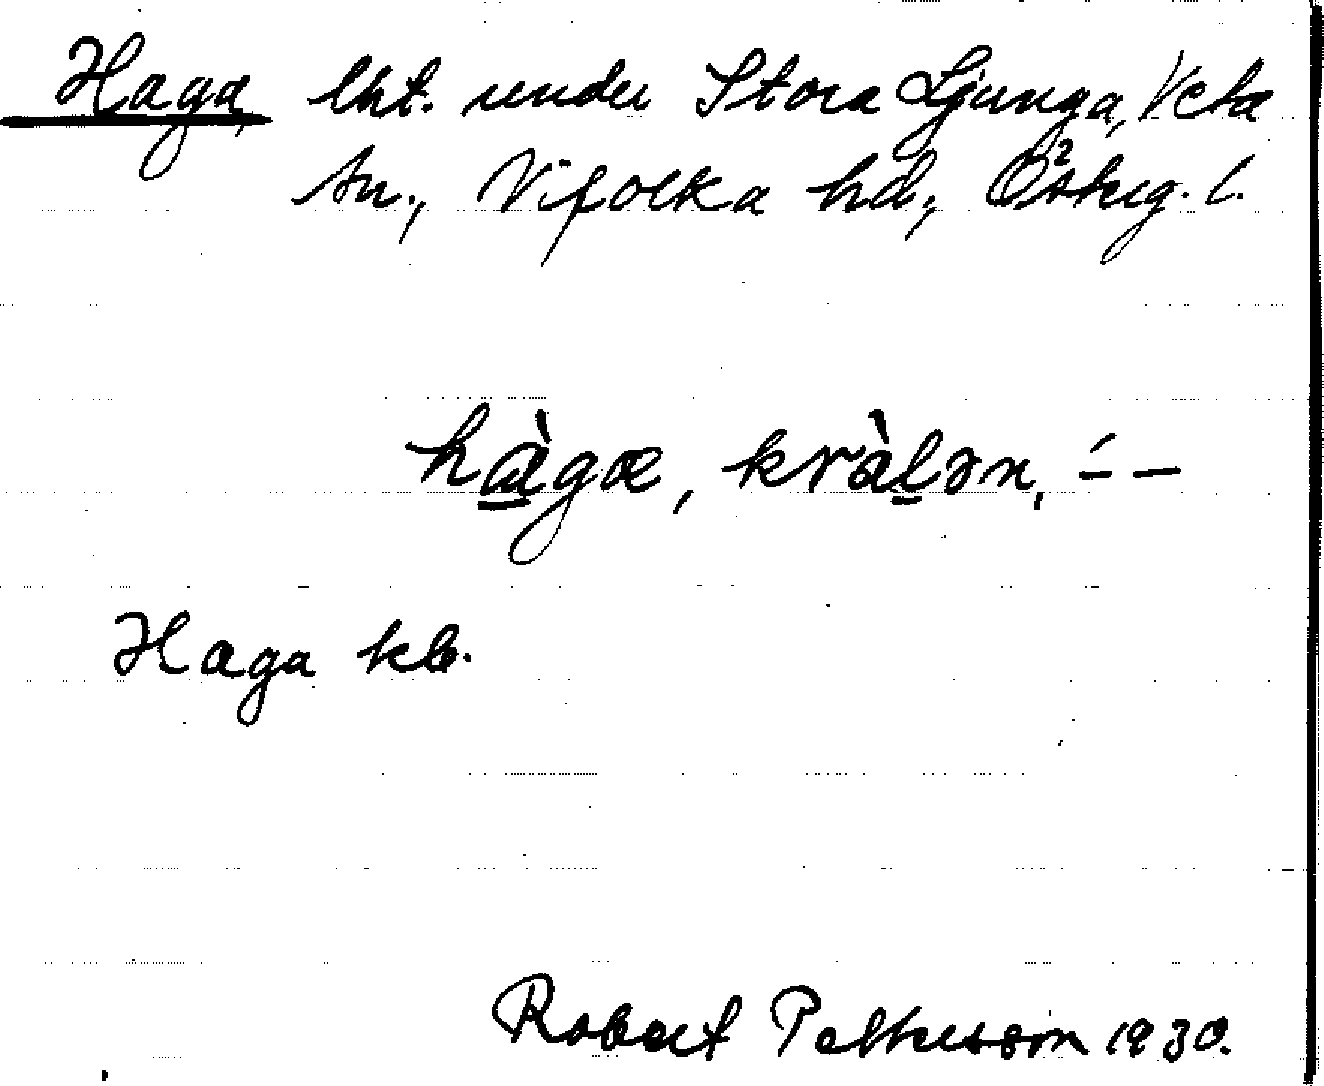 Haga, lht. under Stora Ljunga, Veta
sn., Vifolka hd., Österg. l.
hàgα, kvàlən, ́– –
Haga kb.
Robert Pettersson 1930.